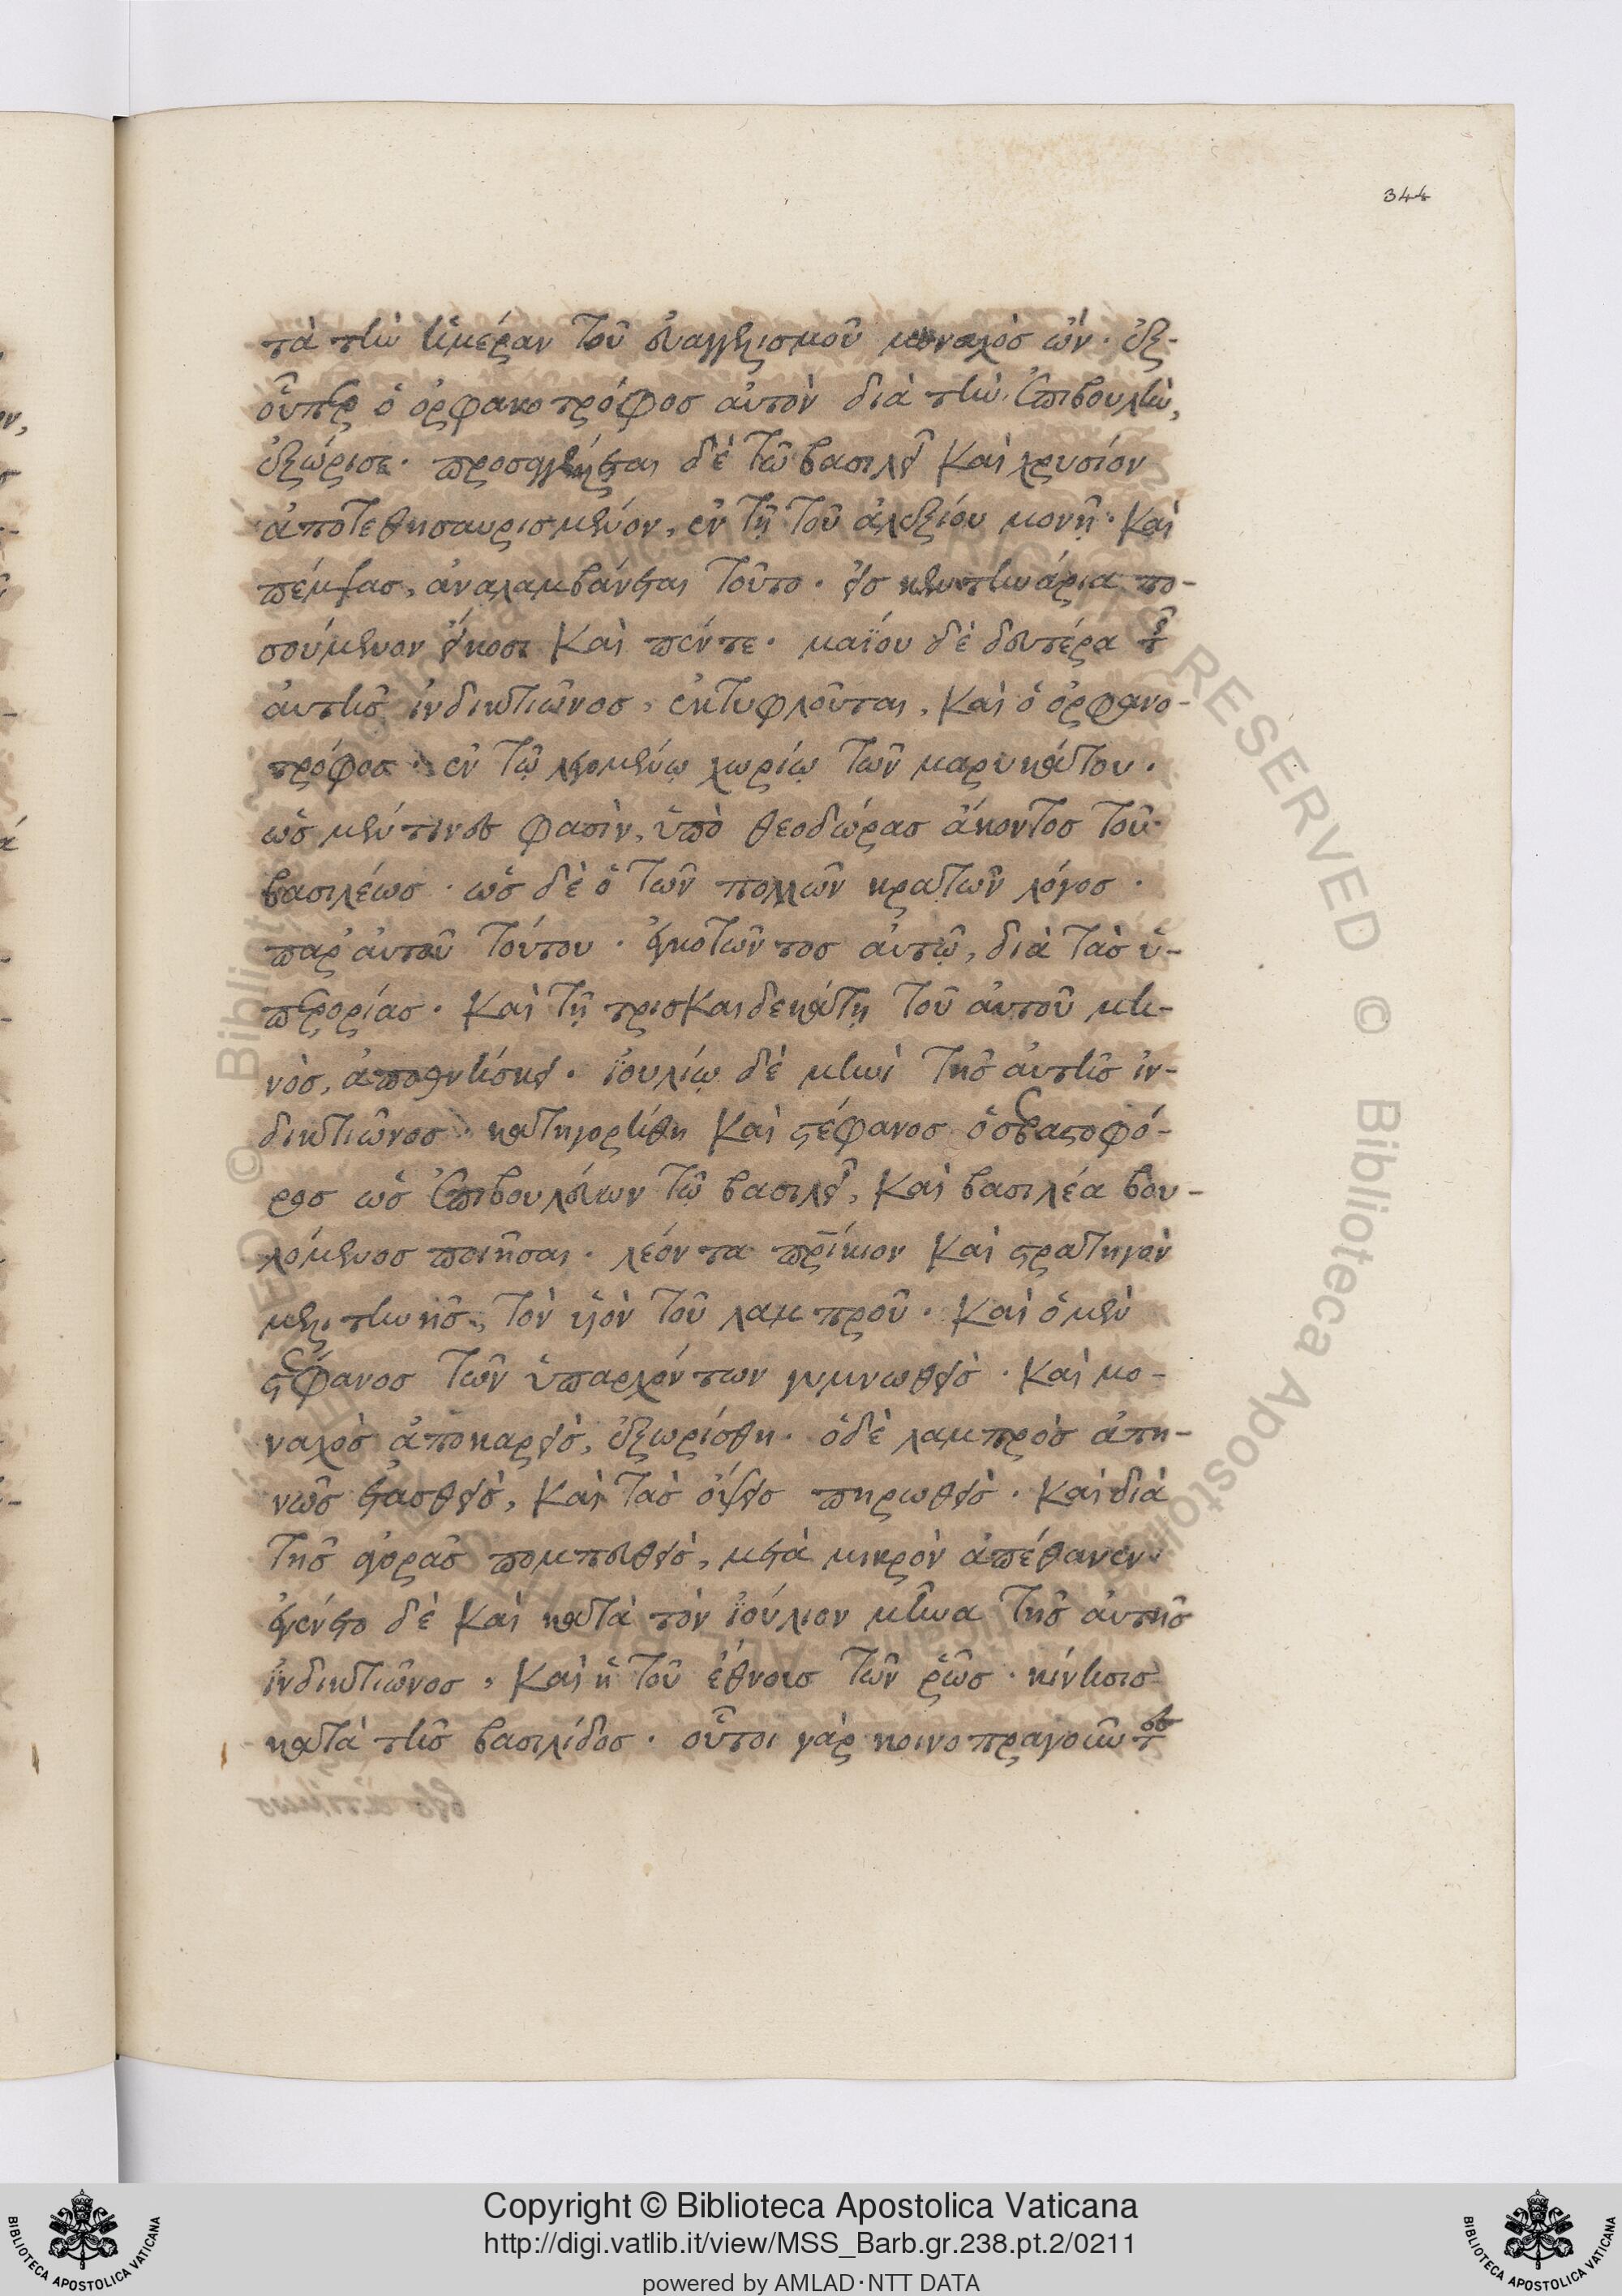 344
τὰ τὴν ἡμέραν τοῦ εὐαγγελισμοῦ μοναχὸς ὤν· ἐξ-
οὗπερ ὁ ὀρφανοτρόφος αὐτὸν διὰ τὴν ἐπιβουλὴν,
ἐξώρισε· προσαγγέλλεται δὲ τῶ βασιλεῖ καὶ χρυσίον
ἀποτεθησαυρισμένον, ἐν τῇ τοῦ ἀλεξίου μονῇ· καὶ
πέμψας, ἀναλαμβάνεται τοῦτο· εἰς κεντηνάρια πο-
σούμενον εἴκοσι καὶ πέντε· μαΐου δὲ δευτέρα τῆς
αὐτῆς ἰνδικτιῶνος, ἐκτυφλοῦται, καὶ ὁ ὀρφανο-
τρόφος· ἐν τῷ λεγομένῳ χωρίῳ τῶν μαρυκάτου·
ὡς μέν τινες φασὶν, ὑπὸ θεοδώρας ἄκοντος τοῦ
βασιλέως· ὡς δὲ ὁ τῶν πολλῶν κρατῶν λόγος·
παρ' αὐτοῦ τούτου· ἐγκοτῶντος αὐτῷ, διὰ τὰς ὑ-
περορίας· καὶ τῇ τρισκαιδεκάτῃ τοῦ αὐτοῦ μη-
νὸς, ἀποθνήσκει· ἰουλίῳ δὲ μηνὶ τῆς αὐτῆς ἰν-
δικτιῶνος· κατηγορήθη καὶ στέφανος ὁ σεβαστοφό-
ρος ὡς ἐπιβουλεύων τῷ βασιλεῖ, καὶ βασιλέα βου-
λόμενος ποιῆσαι· λέοντα πρίκιον καὶ στρατηγὸν
μελιτηνῆς, τὸν υἱὸν τοῦ λαμπροῦ· καὶ ὁ μὲν
στέφανος τῶν ὑπαρχόντων γυμνωθεὶς· καὶ μο-
ναχὸς ἀποκαρεὶς, ἐξωρίσθη· ὁ δὲ λαμπρὸς ἀπη-
νῶς ἐτασθεὶς, καὶ τὰς ὄψεις πηρωθεὶς· καὶ διὰ
τῆς ἀγορᾶς πομπευθεὶς, μετὰ μικρὸν ἀπέθανεν·
ἐγένετο δὲ καὶ κατὰ τὸν ἰούλιον μῆνα τῆς αὐτῆς
ἰνδικτιῶνος, καὶ ἡ τοῦ ἔθνους τῶν ῥῶς· κίνησις
κατὰ τῆς βασιλίδος· οὗτοι γὰρ κοινοπραγοῦντες
Copyright © Biblioteca Apostolica Vaticana
http://digi.vatlib.it/view/MSS_Barb.gr.238.pt.2/0211
powered by AMLAD·NTT DATA